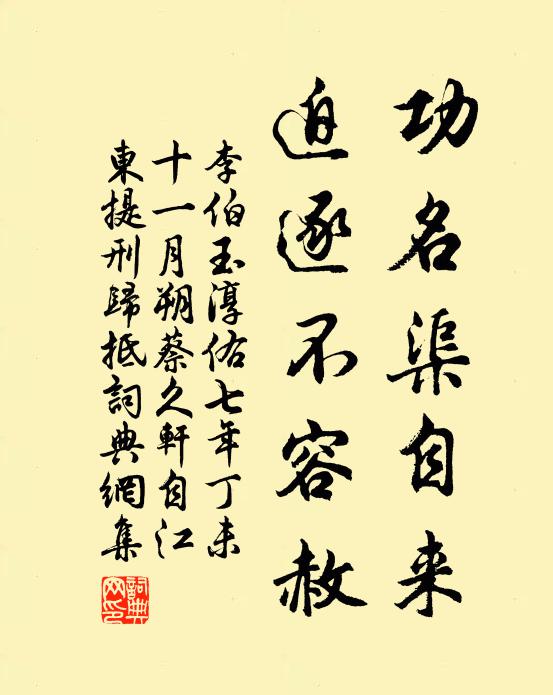 功名渠自来
迫逐不容赦
李伯玉淳佑七年丁未
十一月朔蔡久軒自江
東提刑歸抵詞典網集
詞典网印